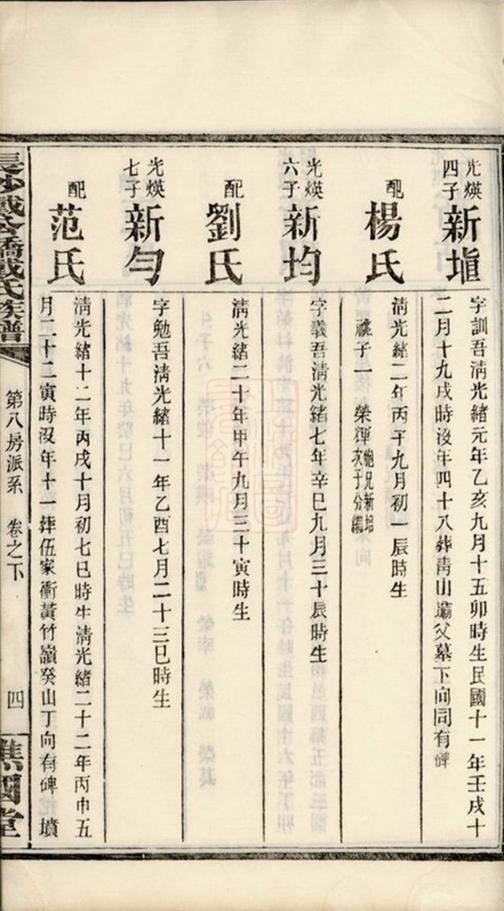 光煐四子 新塤
字訓吾清光緒元年乙亥九月十五卯時生民國十一年壬戌十
二月十九戌時沒年四十八葬靑山壩父墓下向同有碑
配 楊氏
清光緒二年丙子九月初一辰時生
祧子一 榮彈 胞兄新培次子分繼
光煐六子 新均
字義吾淸光緒七年辛巳九月三十辰時生
配 劉氏
清光緒二十年甲午九月三十寅時生
光煐七子 新勻
字勉吾淸光緒十一年乙酉七月二十三巳時生
配 范氏
清光緒十二年丙戌十月初七巳時生淸光緒二十二年丙申五
月二十二寅時沒年十一葬伍家衝黃竹嶺癸山丁向有碑墳
長沙戴公橋戴氏族譜
第八房派系 卷之下
四
譙國堂